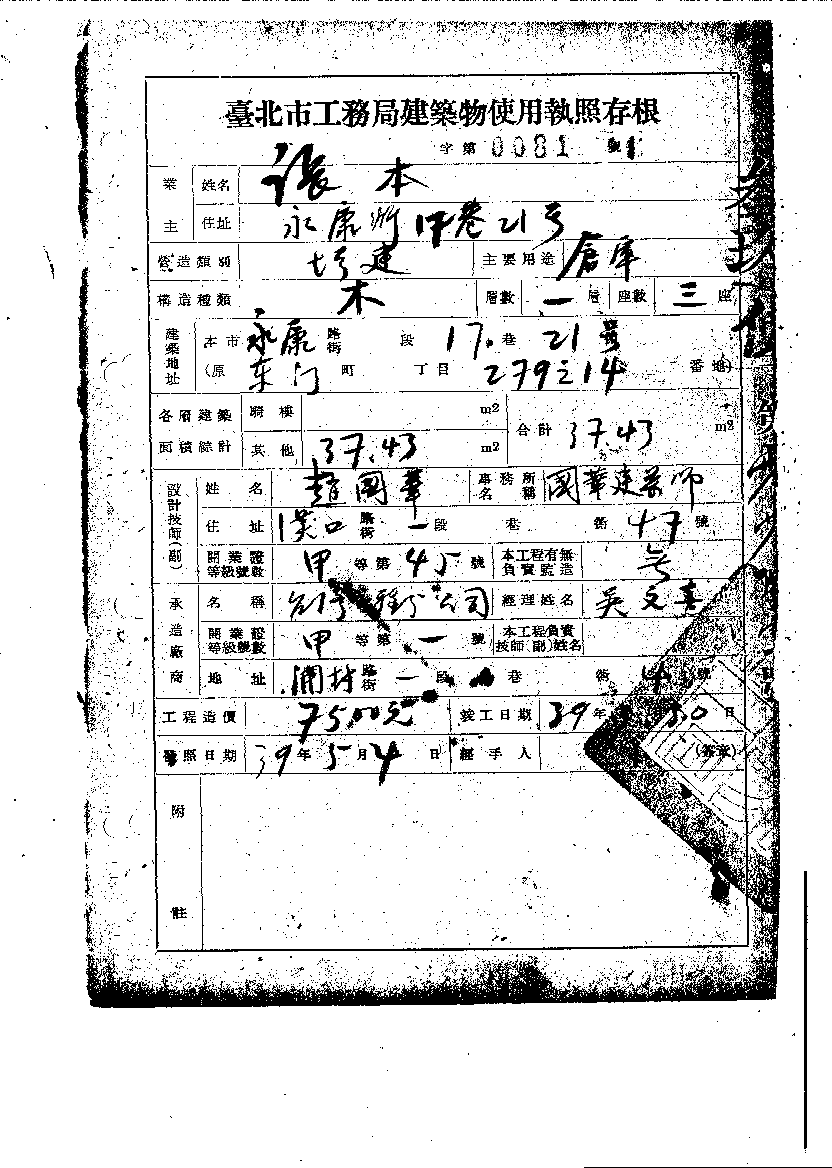 臺北市工務局建築物使用執照存根
字第0081號
業主 姓名 張本
住址 永康街17巷21号
營造類別 增建 主要用途 倉庫
構造種類 木 層數 一層 座數 三座
建築地址 本市 永康 路街 段 17巷 21號
(原 东门 町 丁目 279之14 番地)
各層建築面積綜計 騎樓 m2 合計 37.43 m2
其他 37.43 m2
設計技師(副) 姓名 趙國華 事務所名稱 國華建築師
住址 漢口 路街 一段 巷 衖 47號
開業證等級號數 甲等第45號 本工程有無負責監造
承造廠商 名稱 公司 經理姓名 吳文喜
開業證等級號數 甲等第一號 本工程負責技師(副)姓名
地址 路街 一段 巷 衖 號
工程造價 7500元 竣工日期 39年 30日
發照日期 39年5月4日 經手人 (簽章)
附註